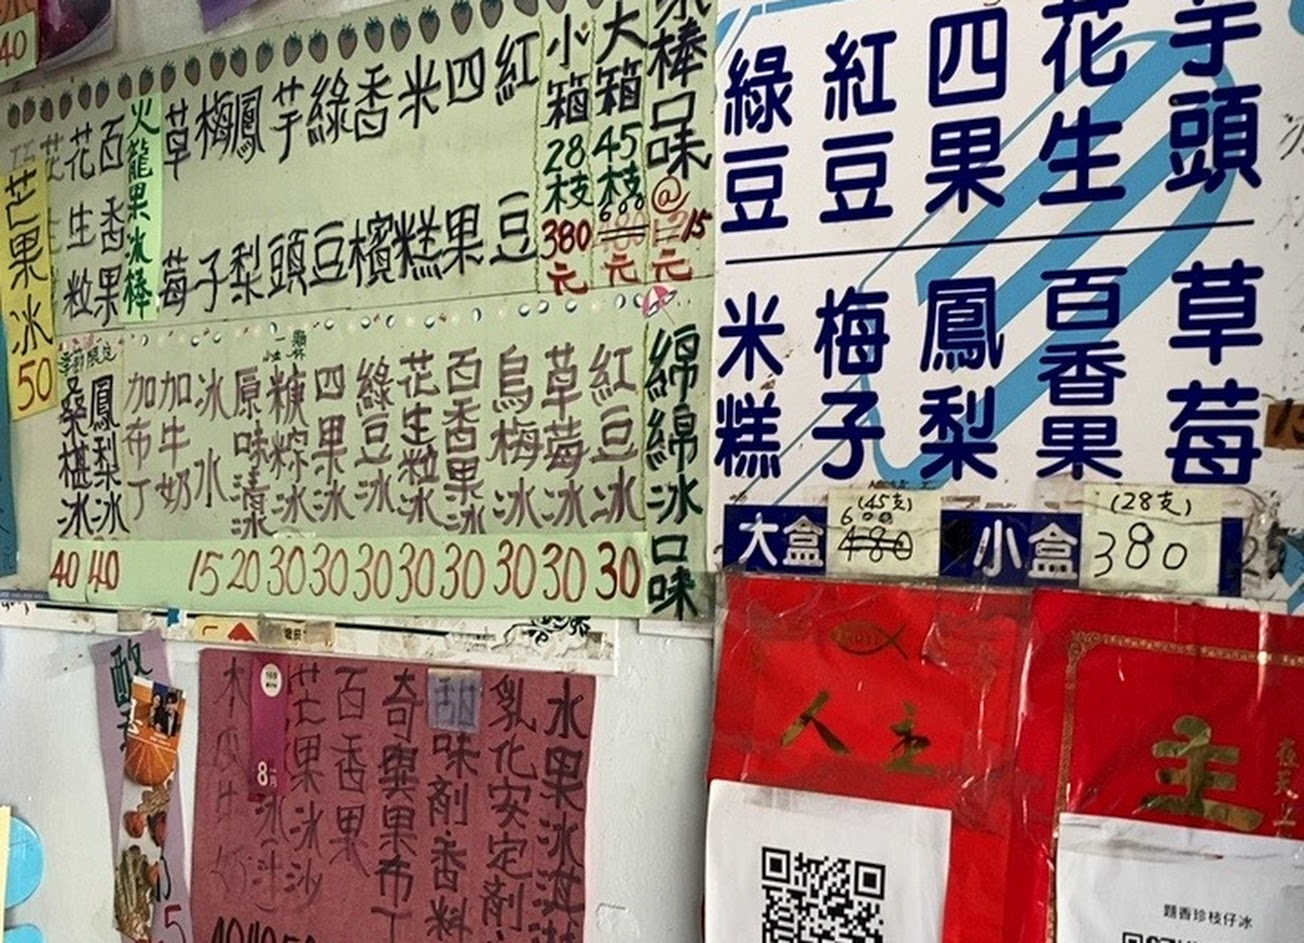 冰棒口味@15元
大箱45枝600元
小箱28枝380元
紅豆
四果
米糕
香檳
綠豆
芋頭
鳳梨
梅子
草莓
火龍果冰棒
百香果
花生粒
芒果冰50
綿綿冰口味
紅豆冰30
草莓冰30
烏梅冰30
百香果冰30
花生粒冰30
綠豆冰30
四果冰30
糖粽冰30
原味清冰20
冰水15
加牛奶
加布丁
季節限定
鳳梨冰40
桑椹冰40
芋頭
花生
四果
紅豆
綠豆
草莓
百香果
鳳梨
梅子
米糕
大盒
(45支)
600
480
小盒
(28支)
380
水果冰淇
乳化安定劑
甜味劑香料
奇異果布丁
百香果
芒果冰沙
冰汁
木瓜牛奶
8
40
人主
主
題香珍枝仔冰